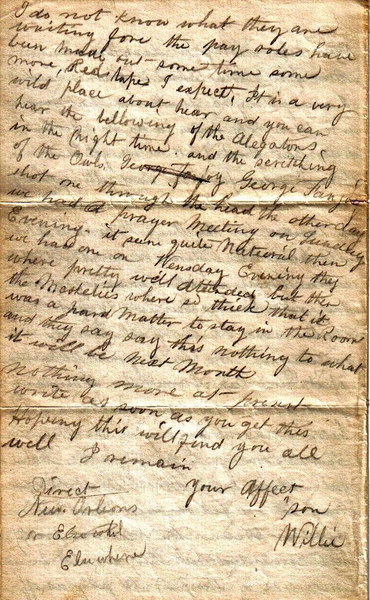 I do not know what they are
waiting fore the pay roles have
been made out some time some
more Redstape I expect, It is a very
wild place about hear and you can
hear the bellowing of the Alegators
in the Night time. and the scritching
of the Owls. George by George
shot one through the head the other day
we had a prayer Meeting on Sunday
Evening. it seme quite Natueral then
we had one on Wensday Evening they
where pretty well Attended but ther
the Mosketies where so thick that it
was a hard Matter to stay in the Room
and they say say this nothing to what
it will be next Month
nothing more at present
write as soon as you get this
Hopeing this will find you all
well I remain
Your Affect
son
Willie
Direct
New Orleons
or
Elsewhere